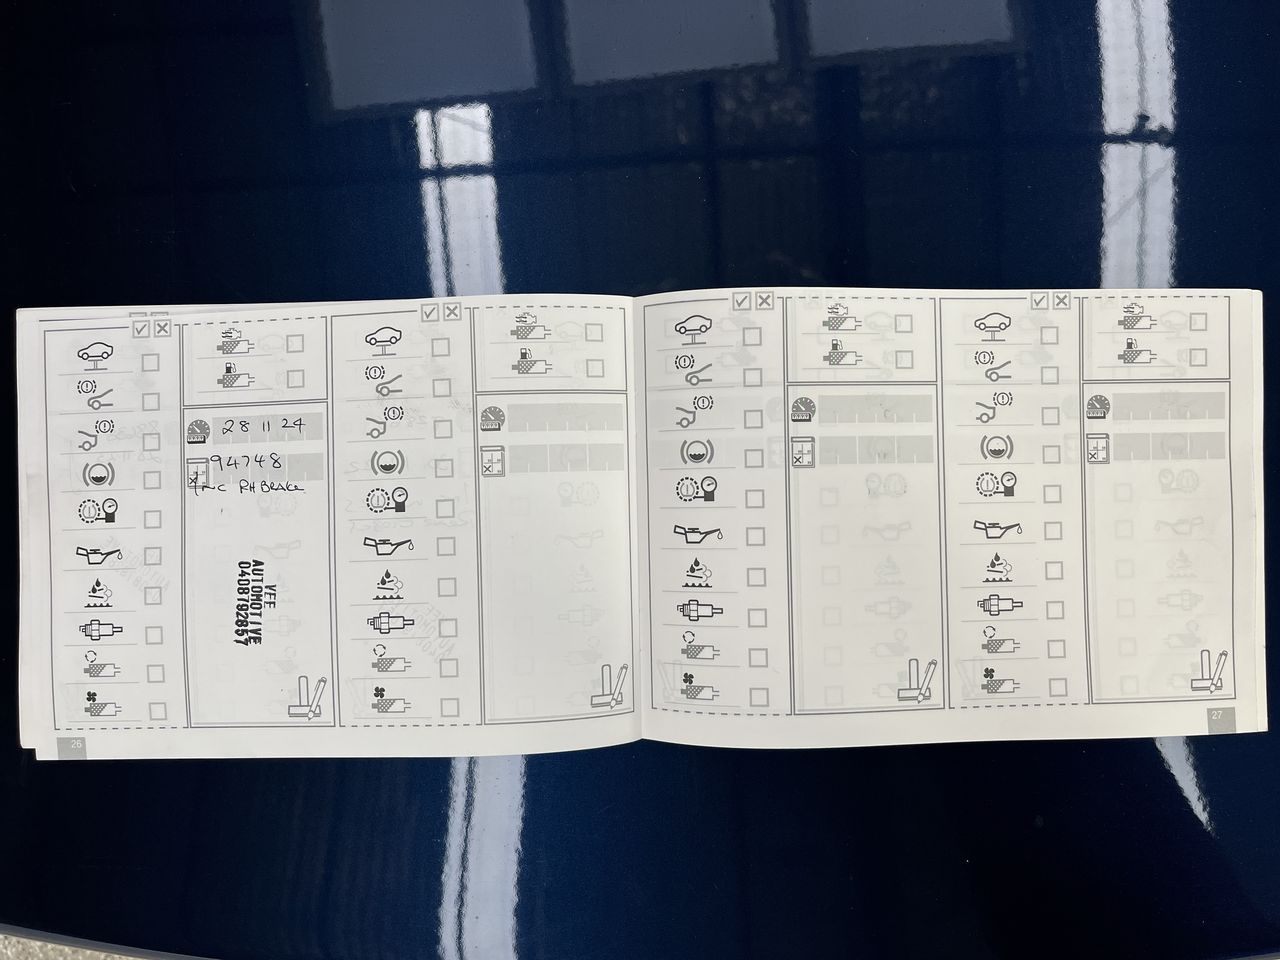 28 11 24
94748
Inc RH Brake
VEE
AUTOMOTIVE
0408792857
26
27